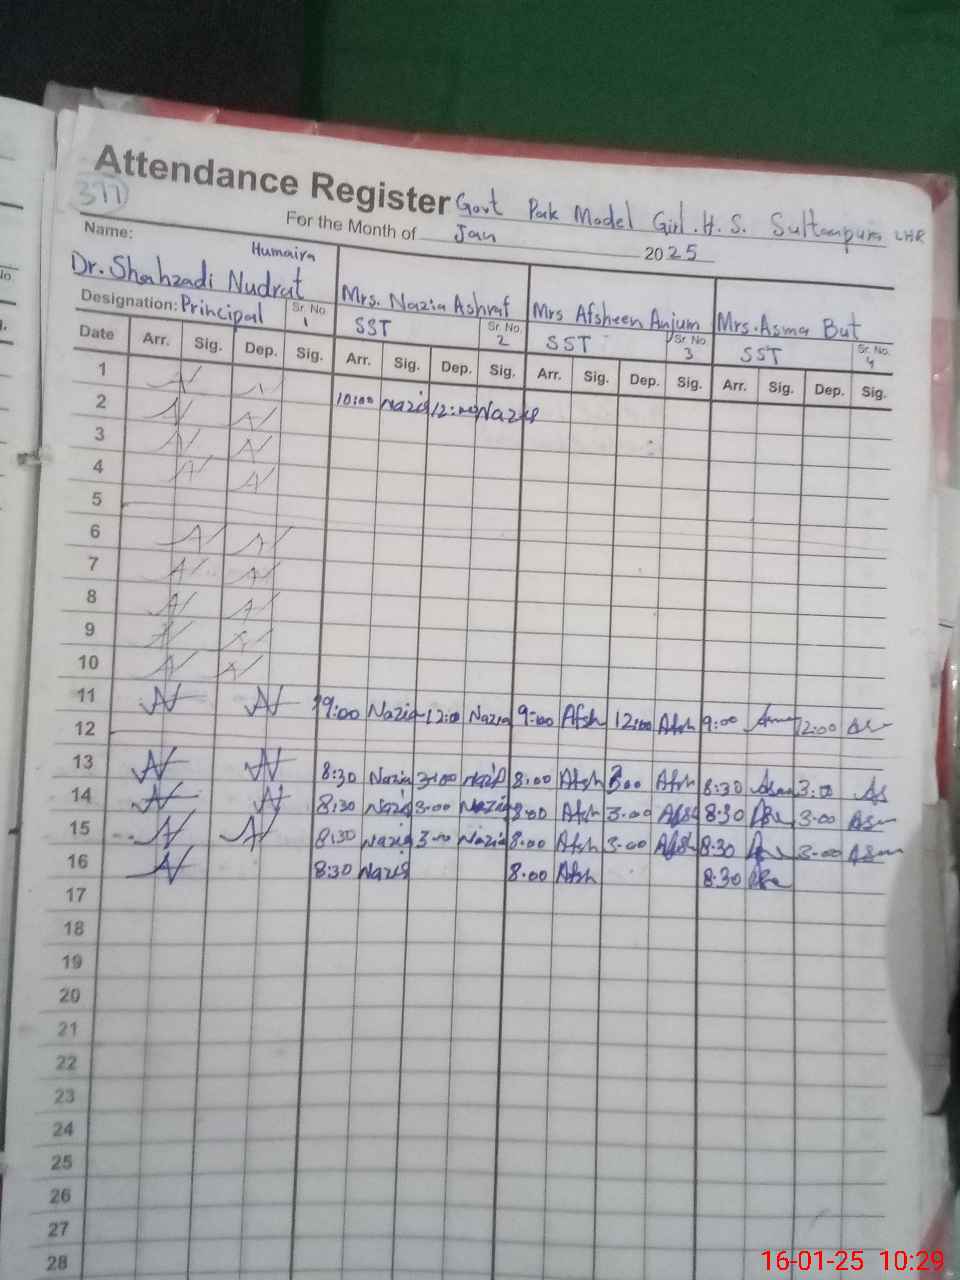 Attendance Register Govt Pak Model Girl.H.S. Sultanpura LHR
377
For the Month of Jan 2025
Name: Humaira
Dr. Shahzadi Nudrat Mrs. Nazia Ashraf Mrs Afsheen Anjum Mrs. Asma But
Designation: Principal Sr. No. 1 SST Sr. No. 2 SST Sr. No. 3 SST Sr. No. 4
Date Arr. Sig. Dep. Sig. Arr. Sig. Dep. Sig. Arr. Sig. Dep. Sig. Arr. Sig. Dep. Sig.
1
2 10:00 Nazia 12:00 Nazia
3
4
5
6
7
8
9
10
11 9:00 Nazia 12:00 Nazia 9:00 Afsh 12:00 Afsh 9:00 12:00
12
13 8:30 Nazia 3:00 Nazia 8:00 Afsh 3:00 Afsh 8:30 3:00 As
14 8:30 Nazia 3:00 Nazia 8:00 Afsh 3:00 Afsh 8:30 3:00 Asm
15 8:30 Nazia 3:00 Nazia 8:00 Afsh 3:00 Afsh 8:30 3:00 Asm
16 8:30 Nazia 8:00 Afsh 8:30
17
18
19
20
21
22
23
24
25
26
27
28
16-01-25 10:29